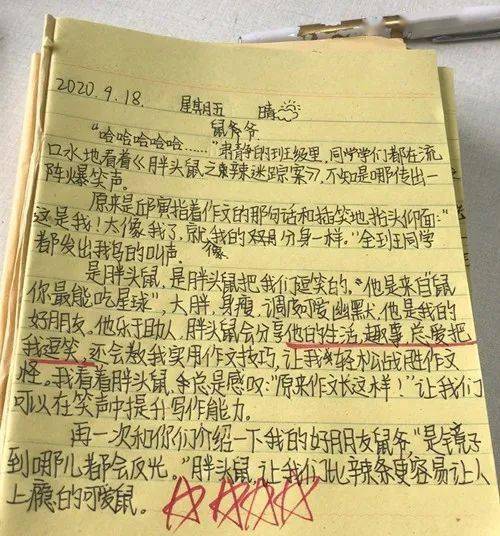 2020.9.18. 星期五 晴
鼠爷爷
“哈哈哈哈哈……”肃静的班级里，同学学们都在流
口水地看着《胖头鼠之辣迷踪案》，不知是哪传出一
阵爆笑声。
原来是邱寅指着作文的那句话和插笑地
这是我！太像我了，就我的双分身一样。”全班同学
都发出我鸟的叫声。像
是胖头鼠，是胖头鼠把我们逗笑的，“他是来自“鼠
你最能吃星球”，大胖，身瘦，调皮可爱幽默，他是我的
好朋友，他乐于助人，胖头鼠会分享他的生活，趣事，总爱把
我逗笑，还会教我实用作文技巧，让我轻松战胜作文
怪。我看着胖头鼠，总是感叹：“原来作文长这样！”让我们
可以在笑声中提升写作能力。
再一次和你们介绍一下我的好朋友鼠爷“是镜子
到哪儿都会反光。”胖头鼠，让我们比辣条更容易让人
上瘾的可爱鼠。